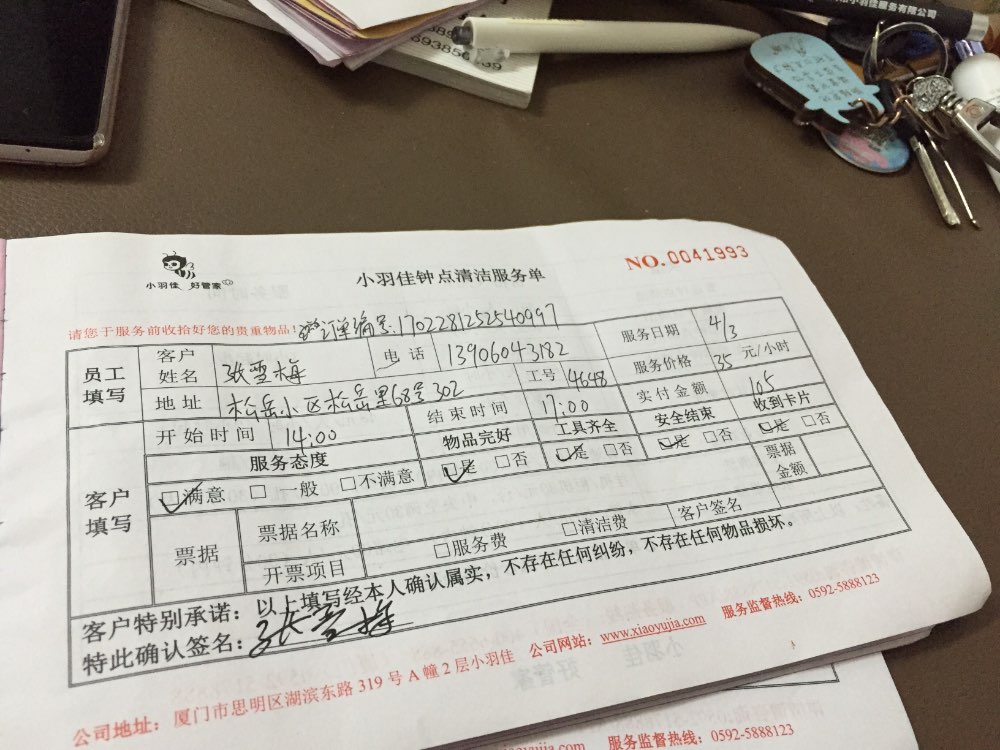 小羽佳服务有限公司
893856939
小羽佳 好管家
小羽佳钟点清洁服务单
NO.0041993
请您于服务前收拾好您的贵重物品!
订单编号:170228125254​0997
员工填写
客户姓名 张雪梅 电话 13906043182 服务日期 4/3
地址 松岳小区松岳里68号302 工号 4648 服务价格 35 元/小时
客户填写
开始时间 14:00 结束时间 17:00 实付金额 105
服务态度 物品完好 工具齐全 安全结束 收到卡片
□满意 □一般 □不满意 □是 □否 □是 □否 □是 □否 □是 □否
票据 票据名称 票据金额
开票项目 □服务费 □清洁费 客户签名
客户特别承诺:以上填写经本人确认属实,不存在任何纠纷,不存在任何物品损坏。
特此确认签名:张雪梅
公司地址:厦门市思明区湖滨东路 319 号 A 幢 2 层小羽佳 公司网站:www.xiaoyujia.com 服务监督热线:0592-5888123
www.xiaoyujia.com 服务监督热线:0592-5888123